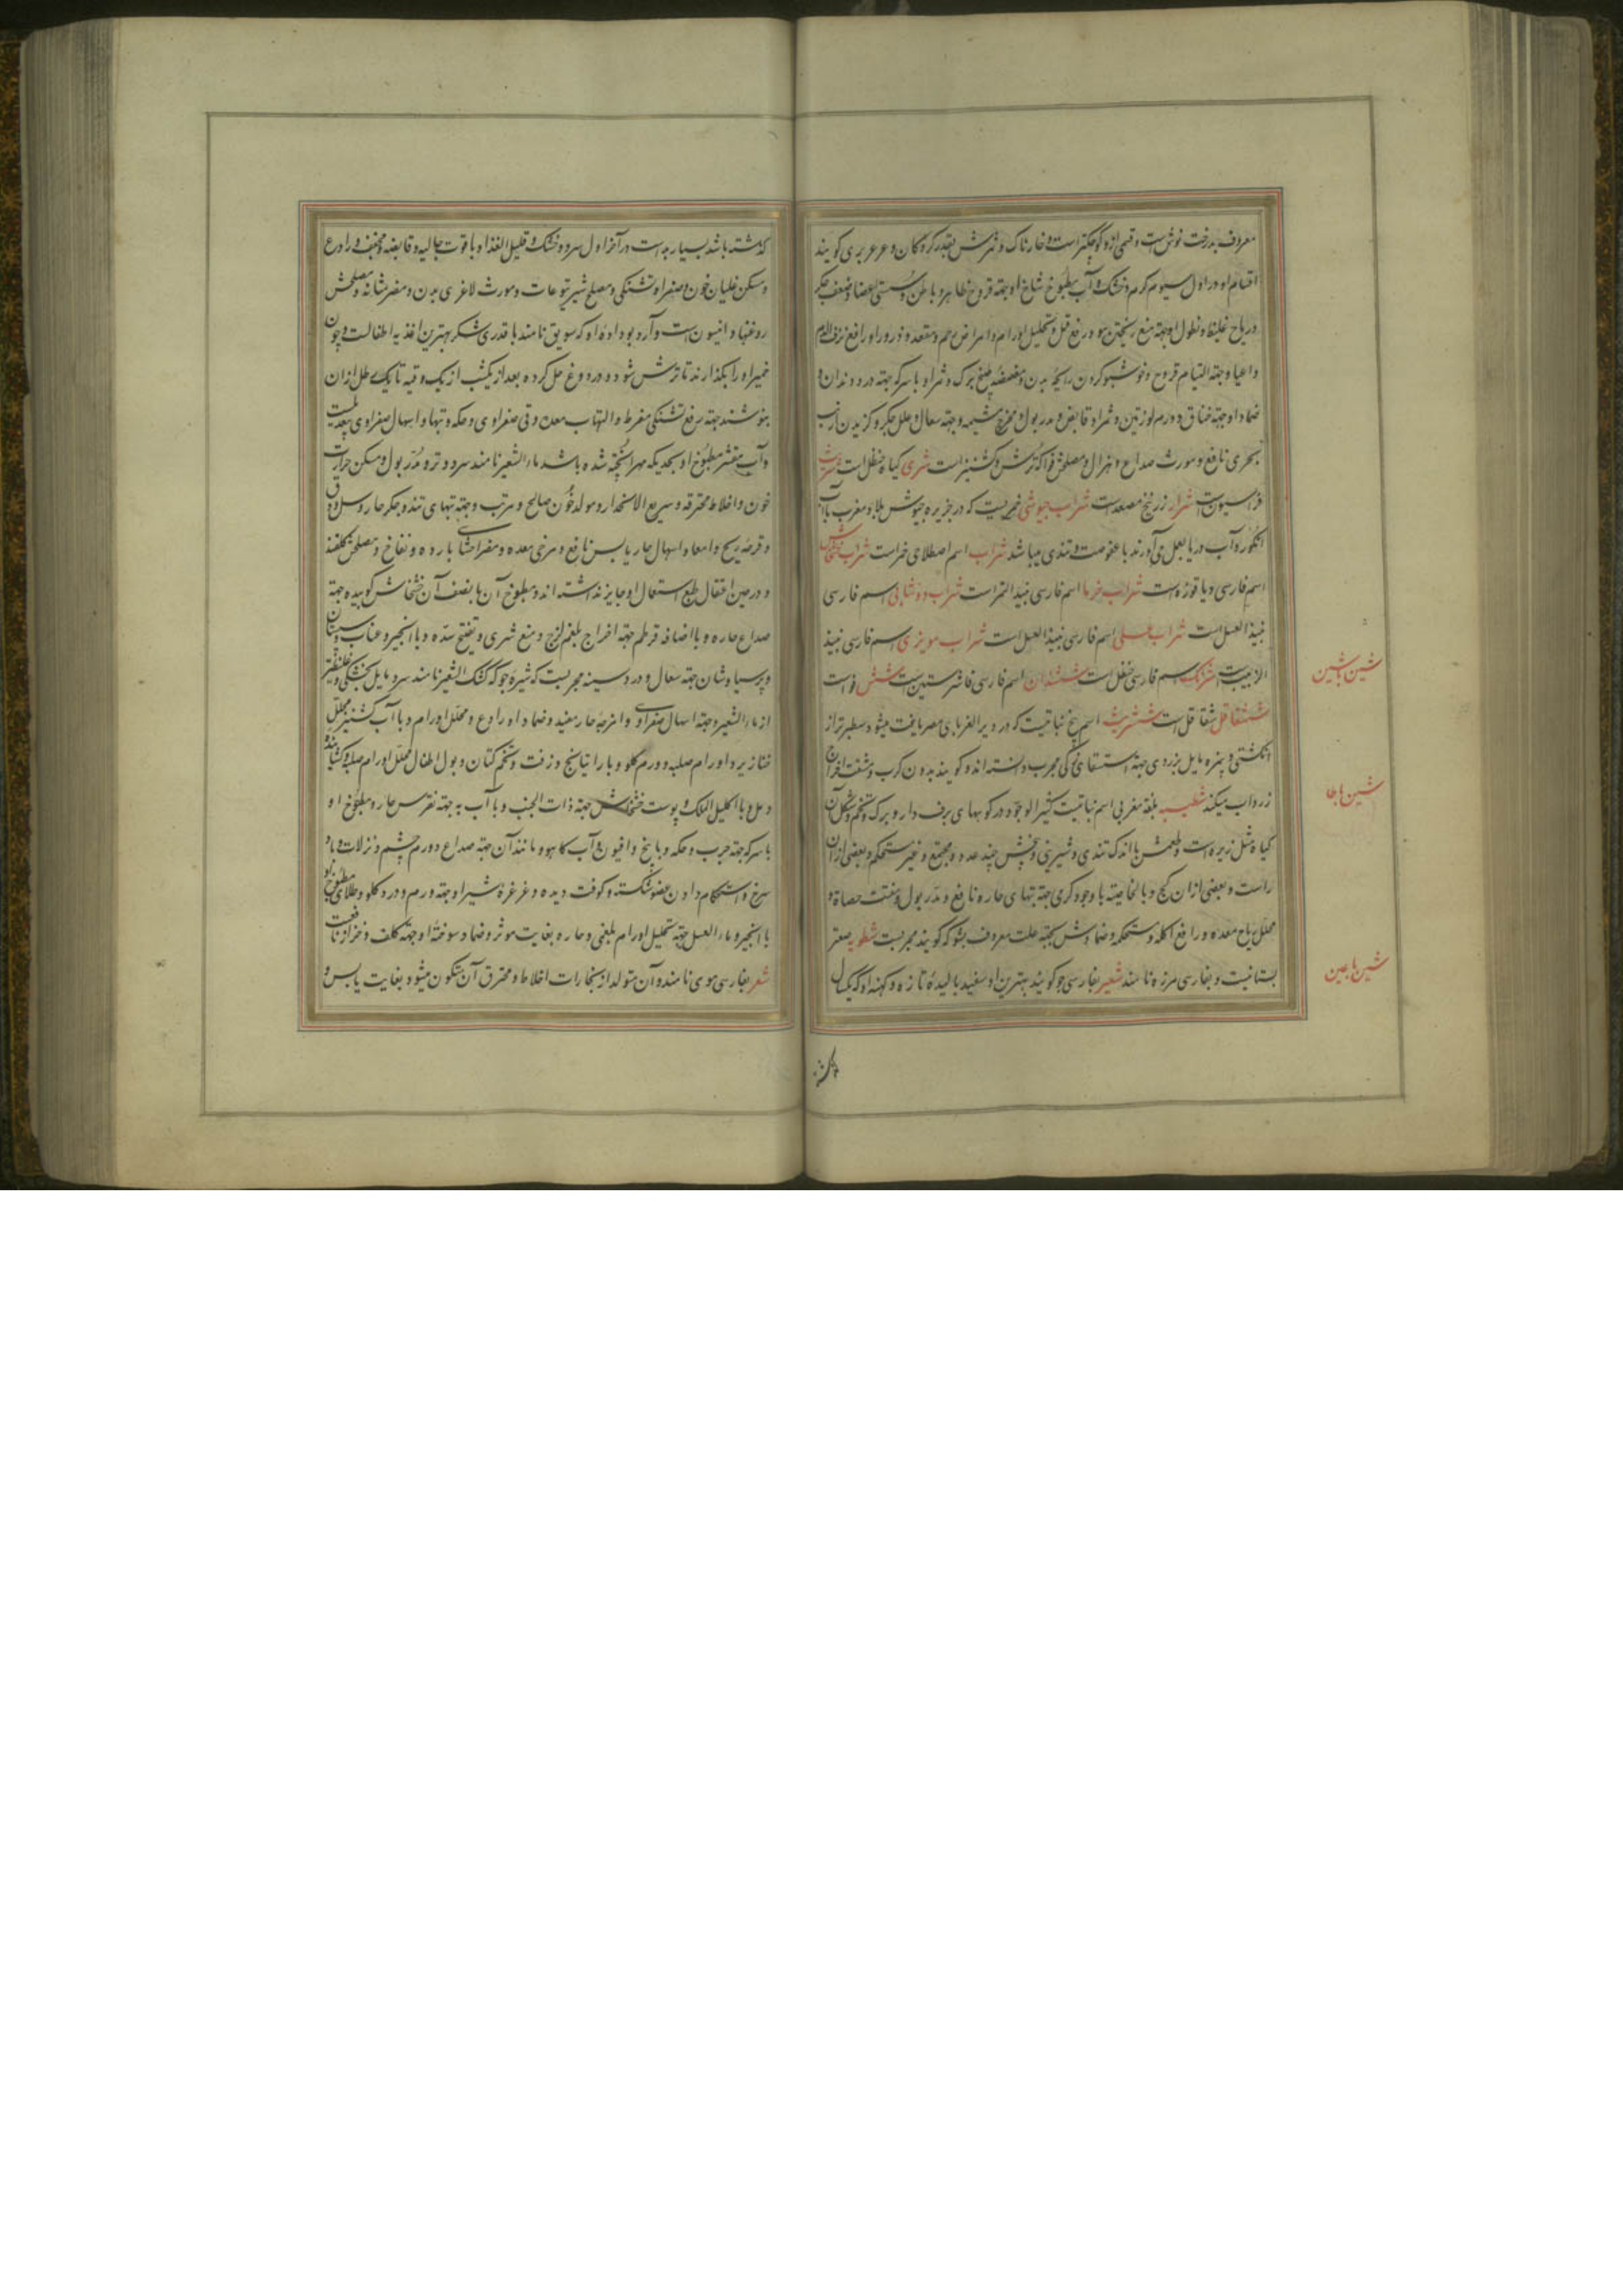 معروف بدرخت نوش است و قسمی ازو کوچکتر است و خارناک و ثمرش بقدر کردکان و عرعر بری کویند
اقسام او در اول سیوم کرم و خشک و آب مطبوخ شاخ او جهة قروح ظاهر و باطن و سستی اعضا و ضعف جکر
و ریاح غلیظ و نطول او جهة منع ریختن مو و رفع قمل و تحلیل اورام و امراض رحم و مقعد و ذرور او رافع نزف الدم
و اعیا و جهة التیام قروح و خوشبو کردن رایحه بدن و مضمضه طبیخ برک و ثمر او با سرکه جهة درد دندان و
ضماد او جهة خناق و ورم لوزتین و ثمر او قابض و مدر بول و مخرج مشیمه و جهة سعال و علل جکر و کزیدن ارنب
بحری نافع و مورث صداع و هزال و مصلحش فواکه ترش و کشنیز است شری کیاه حنظل است
فراسیون است شرار زرنیخ مصعد است شراب حبوشی خمریست که در جزیره حبوش بلاد مغرب با آب
انکور و آب دریا بعمل می‌آورند با عفوصت و تندی میباشد شراب اسم اصطلاحی خمر است شراب خشخاش
اسم فارسی دیاقوزه است شراب خرما اسم فارسی نبیذ التمر است شراب دوشابی اسم فارسی
نبیذ العسل است شراب عسلی اسم فارسی نبیذ العسل است شراب مویزی اسم فارسی نبیذ
الزبیب است شرنک اسم فارسی حنظل است ششندان اسم فارسی فاشرستین است شش فو است
ششقاقل شقاقل است اسم بیخ نباتیست که در دیر الغربای مصر یافت میشود سطبرتر از
انکشتی و پنزه مایل بزردی جهة استسقای زقی مجرب دانسته‌اند و کویند بدون کرب و مشقت اخراج
زرداب میکند شطیبه بلغة مغربی اسم نباتیست کثیر الوجود در کوههای برف دار و برک و تخم و شکل آن
کیاه مثل زیره است و طعمش با اندک تندی و شیرینی و بیخش چند عدد و مجتمع و غیر مستحکم و بعضی از آن
راست و بعضی از آن کج و بالخاصیة با وجود کرمی جهة تبهای حاره نافع و مدر بول و مفتت حصاة و
محلل ریاح معده و رافع اکله و مستحکمه و ضمادش بجهة علت معروف بشوکه کویند مجربست شطریه صعتر
بستانیست و بفارسی مرزه نامند شعیر بفارسی جو کویند بهترین او سفید بالیده تازه و کهنه او که یکسال
شین باشین
شین باطا
شین باعین
کذشته
کذشته باشد بسیار بد است در آخر اول سرد و خشک و قلیل الغذا و با قوت جالیه و قابضه و مجفف و رادع
و مسکن غلیان خون و صفرا و تشنکی و مصلح شیر یتوعات و مورث لاغری بدن و مضر مثانه و مصلحش
روغنها و انیسون است و آرد بوداده او که سویق نامند با قدری شکر بهترین اغذیه اطفالست و چون
خمیر او را بکذارند تا ترش شود و در دوغ حل کرده بعد از یکشب از یک وقیه تا یک رطل از آن
بنوشند جهة رفع تشنکی مفرط و التهاب معده و قی صفراوی و حکه و تبها و اسهال صفراوی بیعدیلست
و آب مقشر مطبوخ او بحدیکه مهرا پخته شده باشد ماء الشعیر نامند سرد و تر و مدر بول و مسکن حرارت
خون و اخلاط محترقه و سریع الانحدار و مولد خون صالح و مرتب و جهة تبهای تند و جکر حار و سل و دق
و قرحه ریه و امعا و اسهال حار یابس نافع و مرخی معده و مضر احشای بارده و نفاخ و مصلحش کلقند
و در حین اقفال طبع استعمال او جایز نداشته‌اند و مطبوخ آن با نصف آن خشخاش کوبیده جهة
صداع حاره و با اضافه قرطم جهة اخراج بلغم لزج و منع شری و تفتیح سده و با انجیر و عناب و سپستان
و پرسیاوشان جهة سعال و درد سینه مجربست کثیره جو که کشک الشعیر نامند سرد و مایل بخشکی و غلیظتر
از ماء الشعیر و جهة اسهال صفراوی و امزجه حار مفید و ضماد او رادع و محلل اورام و با آب کشنیز محلل
خنازیر و اورام صلبه و ورم کلو و با راتیانج و زفت و تخم کتان و بول اطفال محلل اورام صلبه و کشاینده
دمل و با اکلیل الملک و پوست خشخاش جهة ذات الجنب و با آب به جهة نقرس حار و مطبوخ او
با سرکه جهة جرب و حکه و با بنج و افیون و آب کاهو و مانند آن جهة صداع و ورم چشم و نزلات و باد
سرخ و استحکام دادن عضو شکسته و کوفت دیده و غرغره شیر او جهة ورم و درد کلو و طلای مطبوخ او
با انجیر و ماء العسل جهة تحلیل اورام بلغمی و حاره بغایت موثر و ضماد سوخته او جهة کلف و حزاز نافعست
شعر بفارسی موی نامند و آن متولد از بخارات اخلاط و محترق آن متکون میشود بغایت یابس و